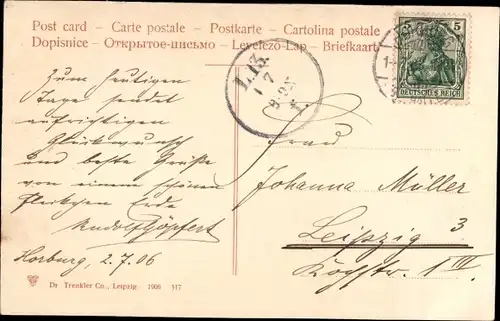 Post card - Carte postale - Postkarte - Cartolina postale
Dopisnice - Открытое-письмо - Levelező-Lap - Briefkaart
5
DEUTSCHES REICH
L.13.
1 7
Zum heutigen
Tage sendet
aufrichtigen
Glückwunsch
und beste Grüße
von einem schönen
Fleckchen Erde
Rudolf Göpfert
Horburg, 2.7.06
Frau
Johanna Müller
Leipzig 3
III
Dr Trenkler Co., Leipzig. 1906 517